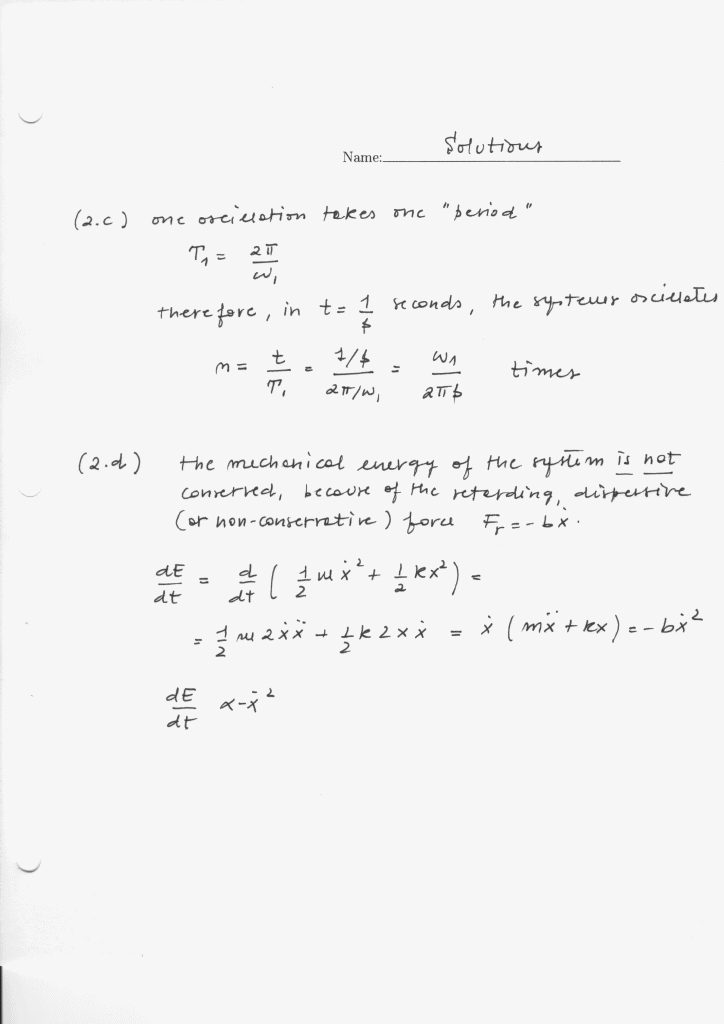 Name: Solutions
(2.c) one oscillation takes one "period"
T₁ = 2π/ω₁
therefore, in t = 1/β seconds, the systems oscillates
n = t/T₁ = (1/β)/(2π/ω₁) = ω₁/2πβ times
(2.d) the mechanical energy of the system is not
conserved, because of the retarding, dispersive
(or non-conservative) force Fᵣ = -bẋ.
dE/dt = d/dt ( 1/2 mẋ² + 1/2 kx² ) =
= 1/2 m 2ẋẍ + 1/2 k 2xẋ = ẋ (mẍ + kx) = -bẋ²
dE/dt ∝ -ẋ²